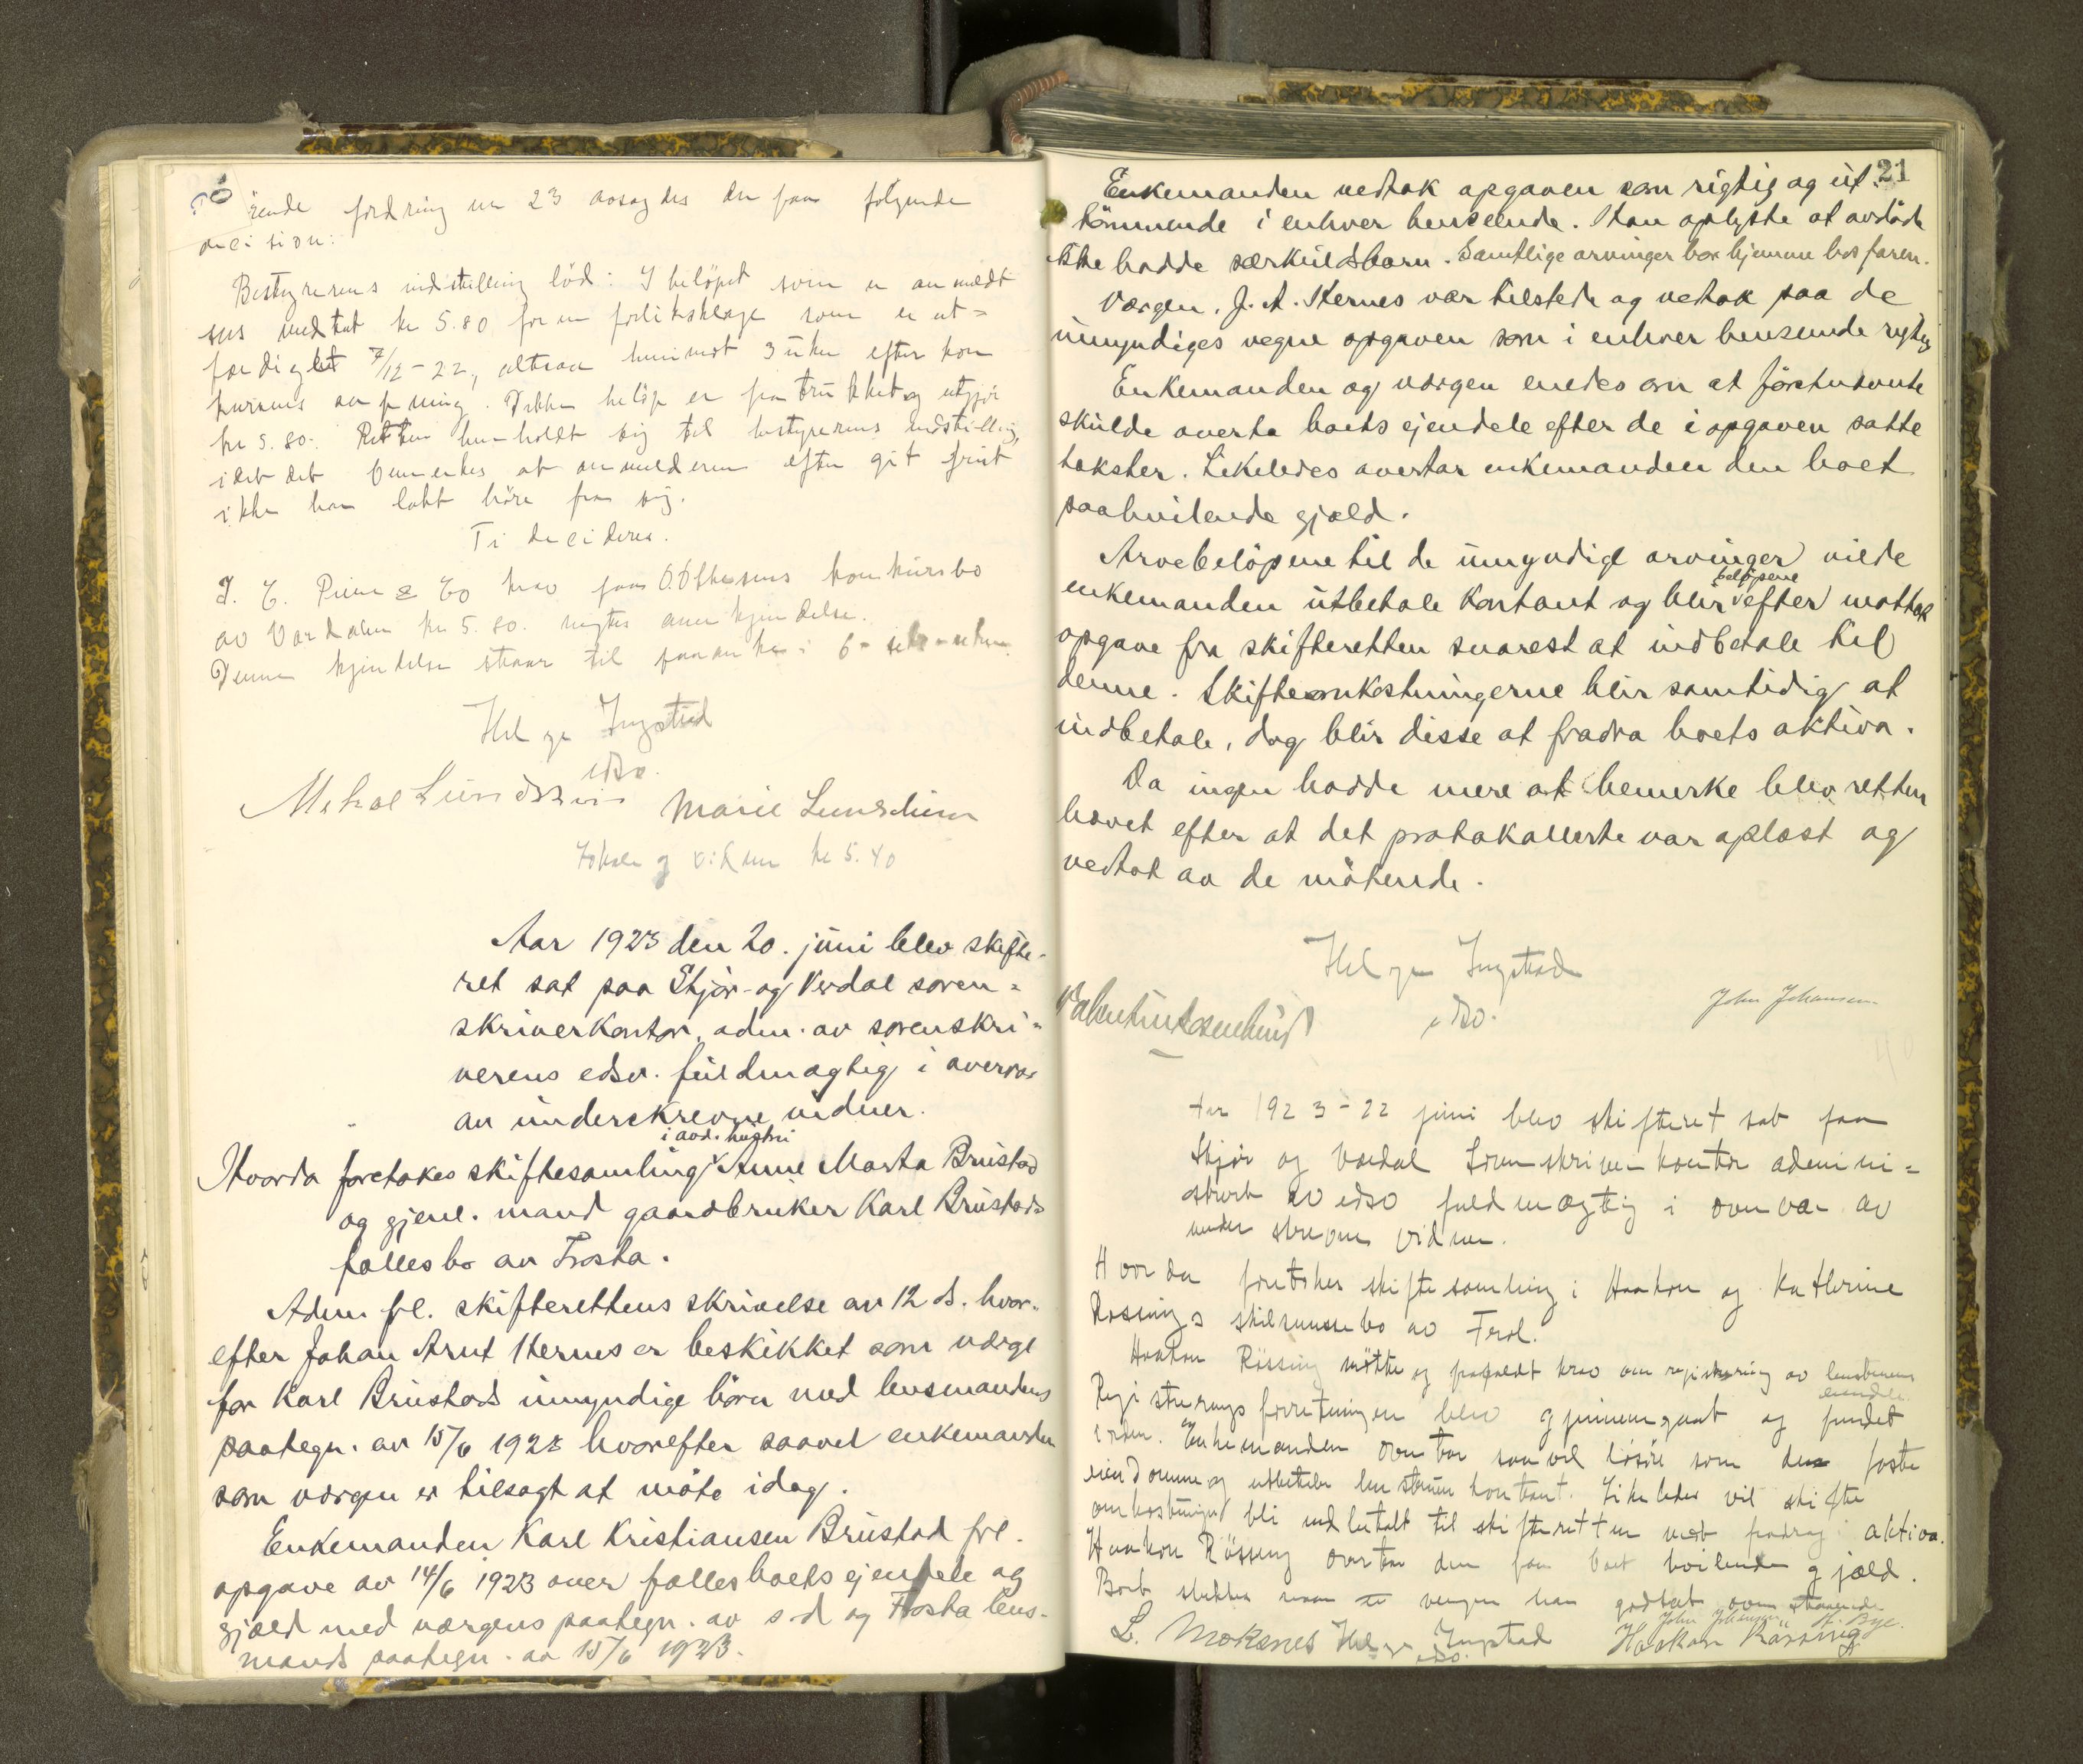 rende fordring nr 23 avsagdes den paa følgende
decision:
Bestyrerens indstilling lød: I beløpet som er anmeldt
sees medtat kr 5.80 for en forliksklage som er ut=
færdiget 7/12-22, altsaa henimot 3 uker efter kon
kursens aapning. Dette beløp er fratrukket og utgjør
kr 5.80. Retten henholdt sig til bestyrerens indstilling,
idet det bemerkes at anmelderen efter git frist
ikke har latt høre fra sig.
Ti decideres:
I. C. Piene & Co krav paa konkursbo
av Værdalen kr 5.80. negtes anerkjendelse.
Denne kjendelse staar til paaanke i 6-seks-uker.
Helge Ingstad
edsv.
Marie
Lokale og vidner kr 5.40
Aar 1923 den 20. juni blev skifte-
ret sat paa Stjør- og Verdal soren=
skriverkontor, adm. av sorenskri=
verens edsv. fuldmægtig i overvær
av underskrevne vidner.
i avd. hustru
Hvorda foretokes skiftesamling Anne Marta Brustad
og gjenl. mand gaardbruker Karl Brustads
fællesbo av Frosta.
Adm. frl. skifterettens skrivelse av 12 ds. hvor-
efter Johan Arnt Hernes er beskikket som værge
for Karl Brustads umyndige børn med lensmandens
paategn. av 15/6 1923 hvorefter saavel enkemanden
som værgen er tilsagt at møte idag.
Enkemanden Karl Kristiansen Brustad frl.
opgave av 14/6 1923 over fællesboets ejendele og
gjæld med værgens paategn. av s.d og Frosta lens-
mands paategn. av 15/6 1923.
21
Enkemanden vedtok opgaven som rigtig og ut-
tømmende i enhver henseende. Han oplyste at avdøde
ikke hadde særkuldsbarn. Samtlige arvinger bor hjemme hos faren.
Værgen, J. A. Hernes var tilstede og vetok paa de
umyndiges vegne opgaven som i enhver henseende rigtig
Enkemanden og værgen enedes om at førstnævnte
skulde overta boets ejendele efter de i opgaven satte
takster. Likeledes overtar enkemanden den boet
paahvilende gjæld.
Arvebeløpene til de umyndige arvinger vilde
beløpene
enkemanden utbetale kontant og blir efter mottat
opgave fra skifteretten snarest at indbetale til
denne. Skifteomkostningerne blir samtidig at
indbetale, dog blir disse at fradra boets aktiva.
Da ingen hadde mere at bemerke blev retten
hævet efter at det protokollerte var oplæst og
vedtat av de møtende.
Helge Ingstad
edsv.
John Johansen
Aar 1923-22 juni blev skifteret sat paa
Stjør og Værdal Sorenskriverkontor admini=
strert av edsv fuldmægtig i overvær av
underskrevne vidner.
Hvorda foretokes skiftesamling i Haakon og Kathrine
Røssings skilsmissebo av Frol.
Haakon Røssing møtte og frafaldt krav om registrering av
eiendele.
Registreringsforretningen blev gjennemgaat og fundet
i orden. Enkemanden overtar saavel løsøre som den faste
eiendomme og utbetaler kontant. Likeledes vil skifte
omkostninger bli indbetalt til skifteretten mot fradrag i aktiva.
Haakon Røssing overtar den paa boet hvilende gjæld.
Boet sluttes naar værgen har godtat ovenstaaende
John Johansen
L. Moksnes Helge Ingstad Haakon Røssing
edsv.